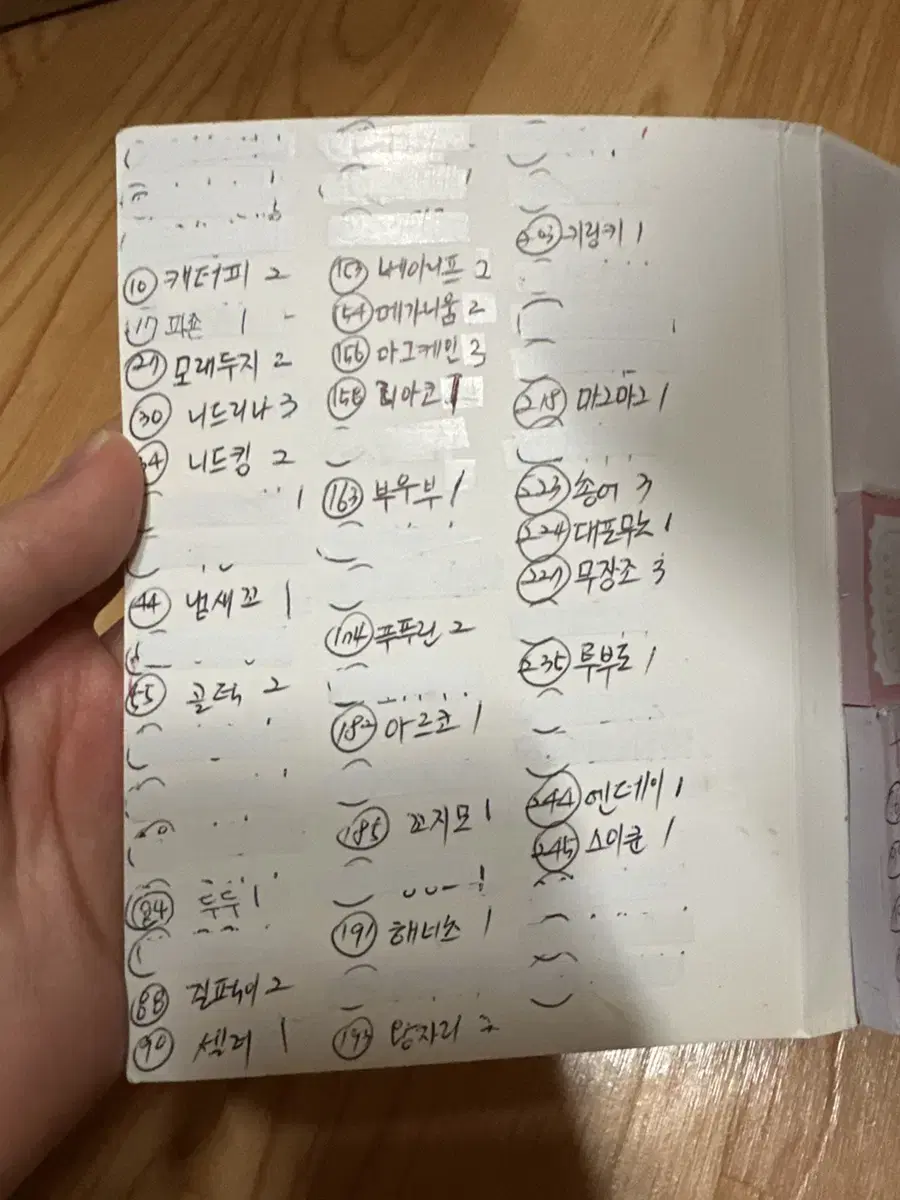 ⑩ 캐터피 2
⑰ 피죤 1
㉗ 모래두지 2
㉚ 니드리나 3
34 니드킹 2
㊹ 냄새꼬 1
55 골덕 2
84 두두 1
88 질퍽이 2
90 셀러 1
153 베이니프 2
154 메가니움 2
156 마그케인 3
158 리아코 1
163 부우부 1
174 푸푸린 2
182 아르코 1
185 꼬지모 1
191 해너츠 1
193 왕자리 2
203 키링키 1
218 마그마그 1
223 총어 3
224 대포무노 1
227 무장조 3
235 루브도 1
244 앤테이 1
245 스이쿤 1